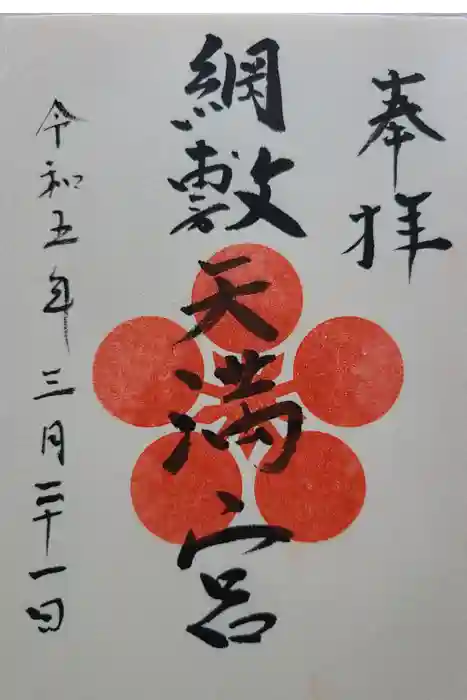 奉拝
網敷天満宮
令和五年三月二十一日